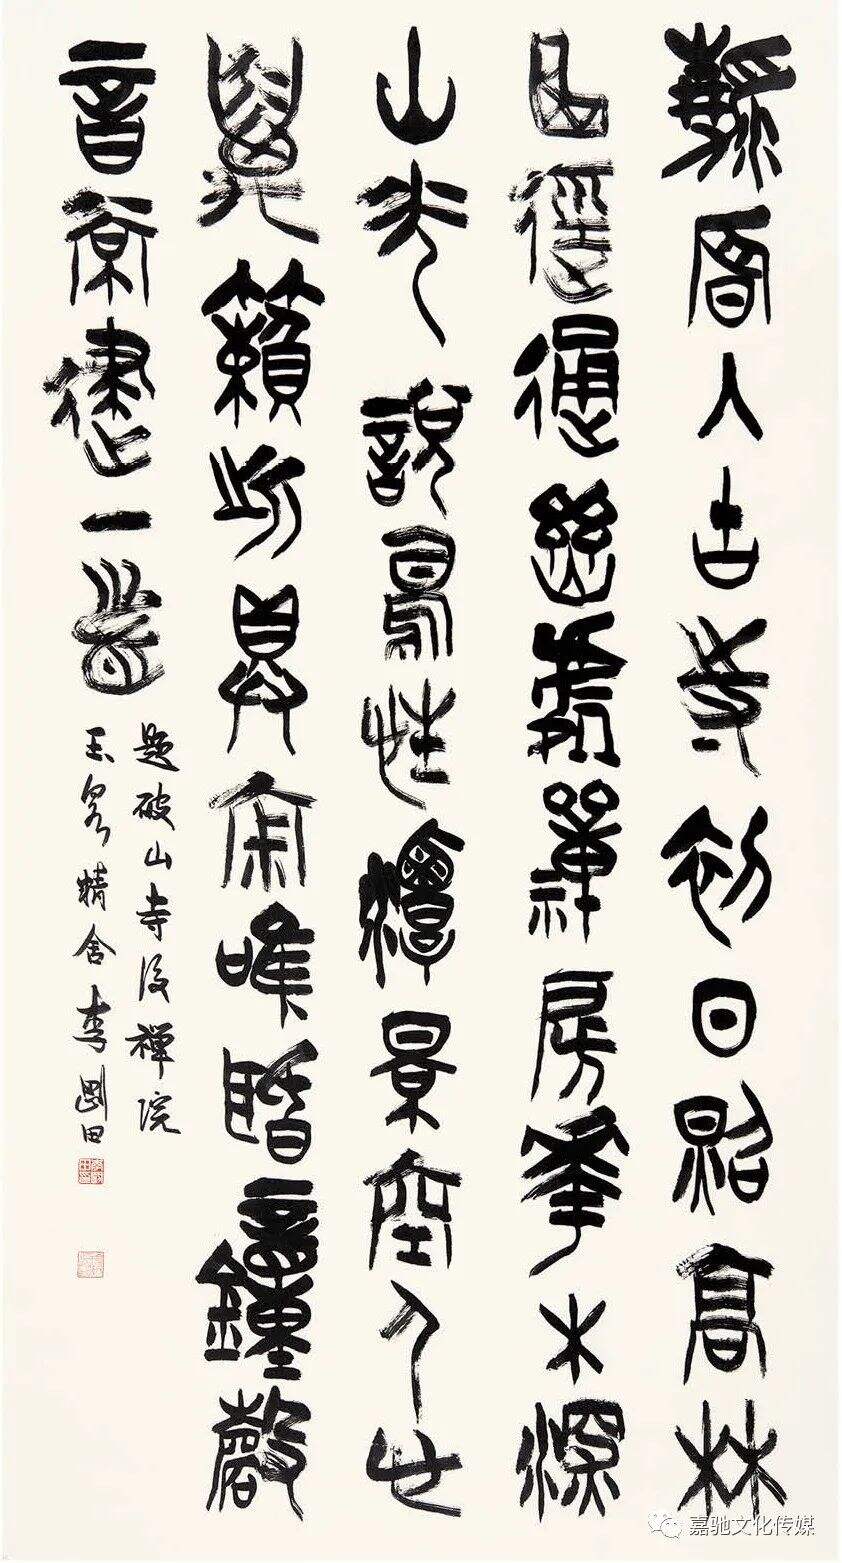 清晨入古寺初日照高林
曲徑通幽處禪房華木深
山光說鳥性潭景空人心
萬籟此具寂唯聞鐘磬
音常建一首
題破山寺後禪院
玉泉精舍李剛田
嘉驰文化传媒